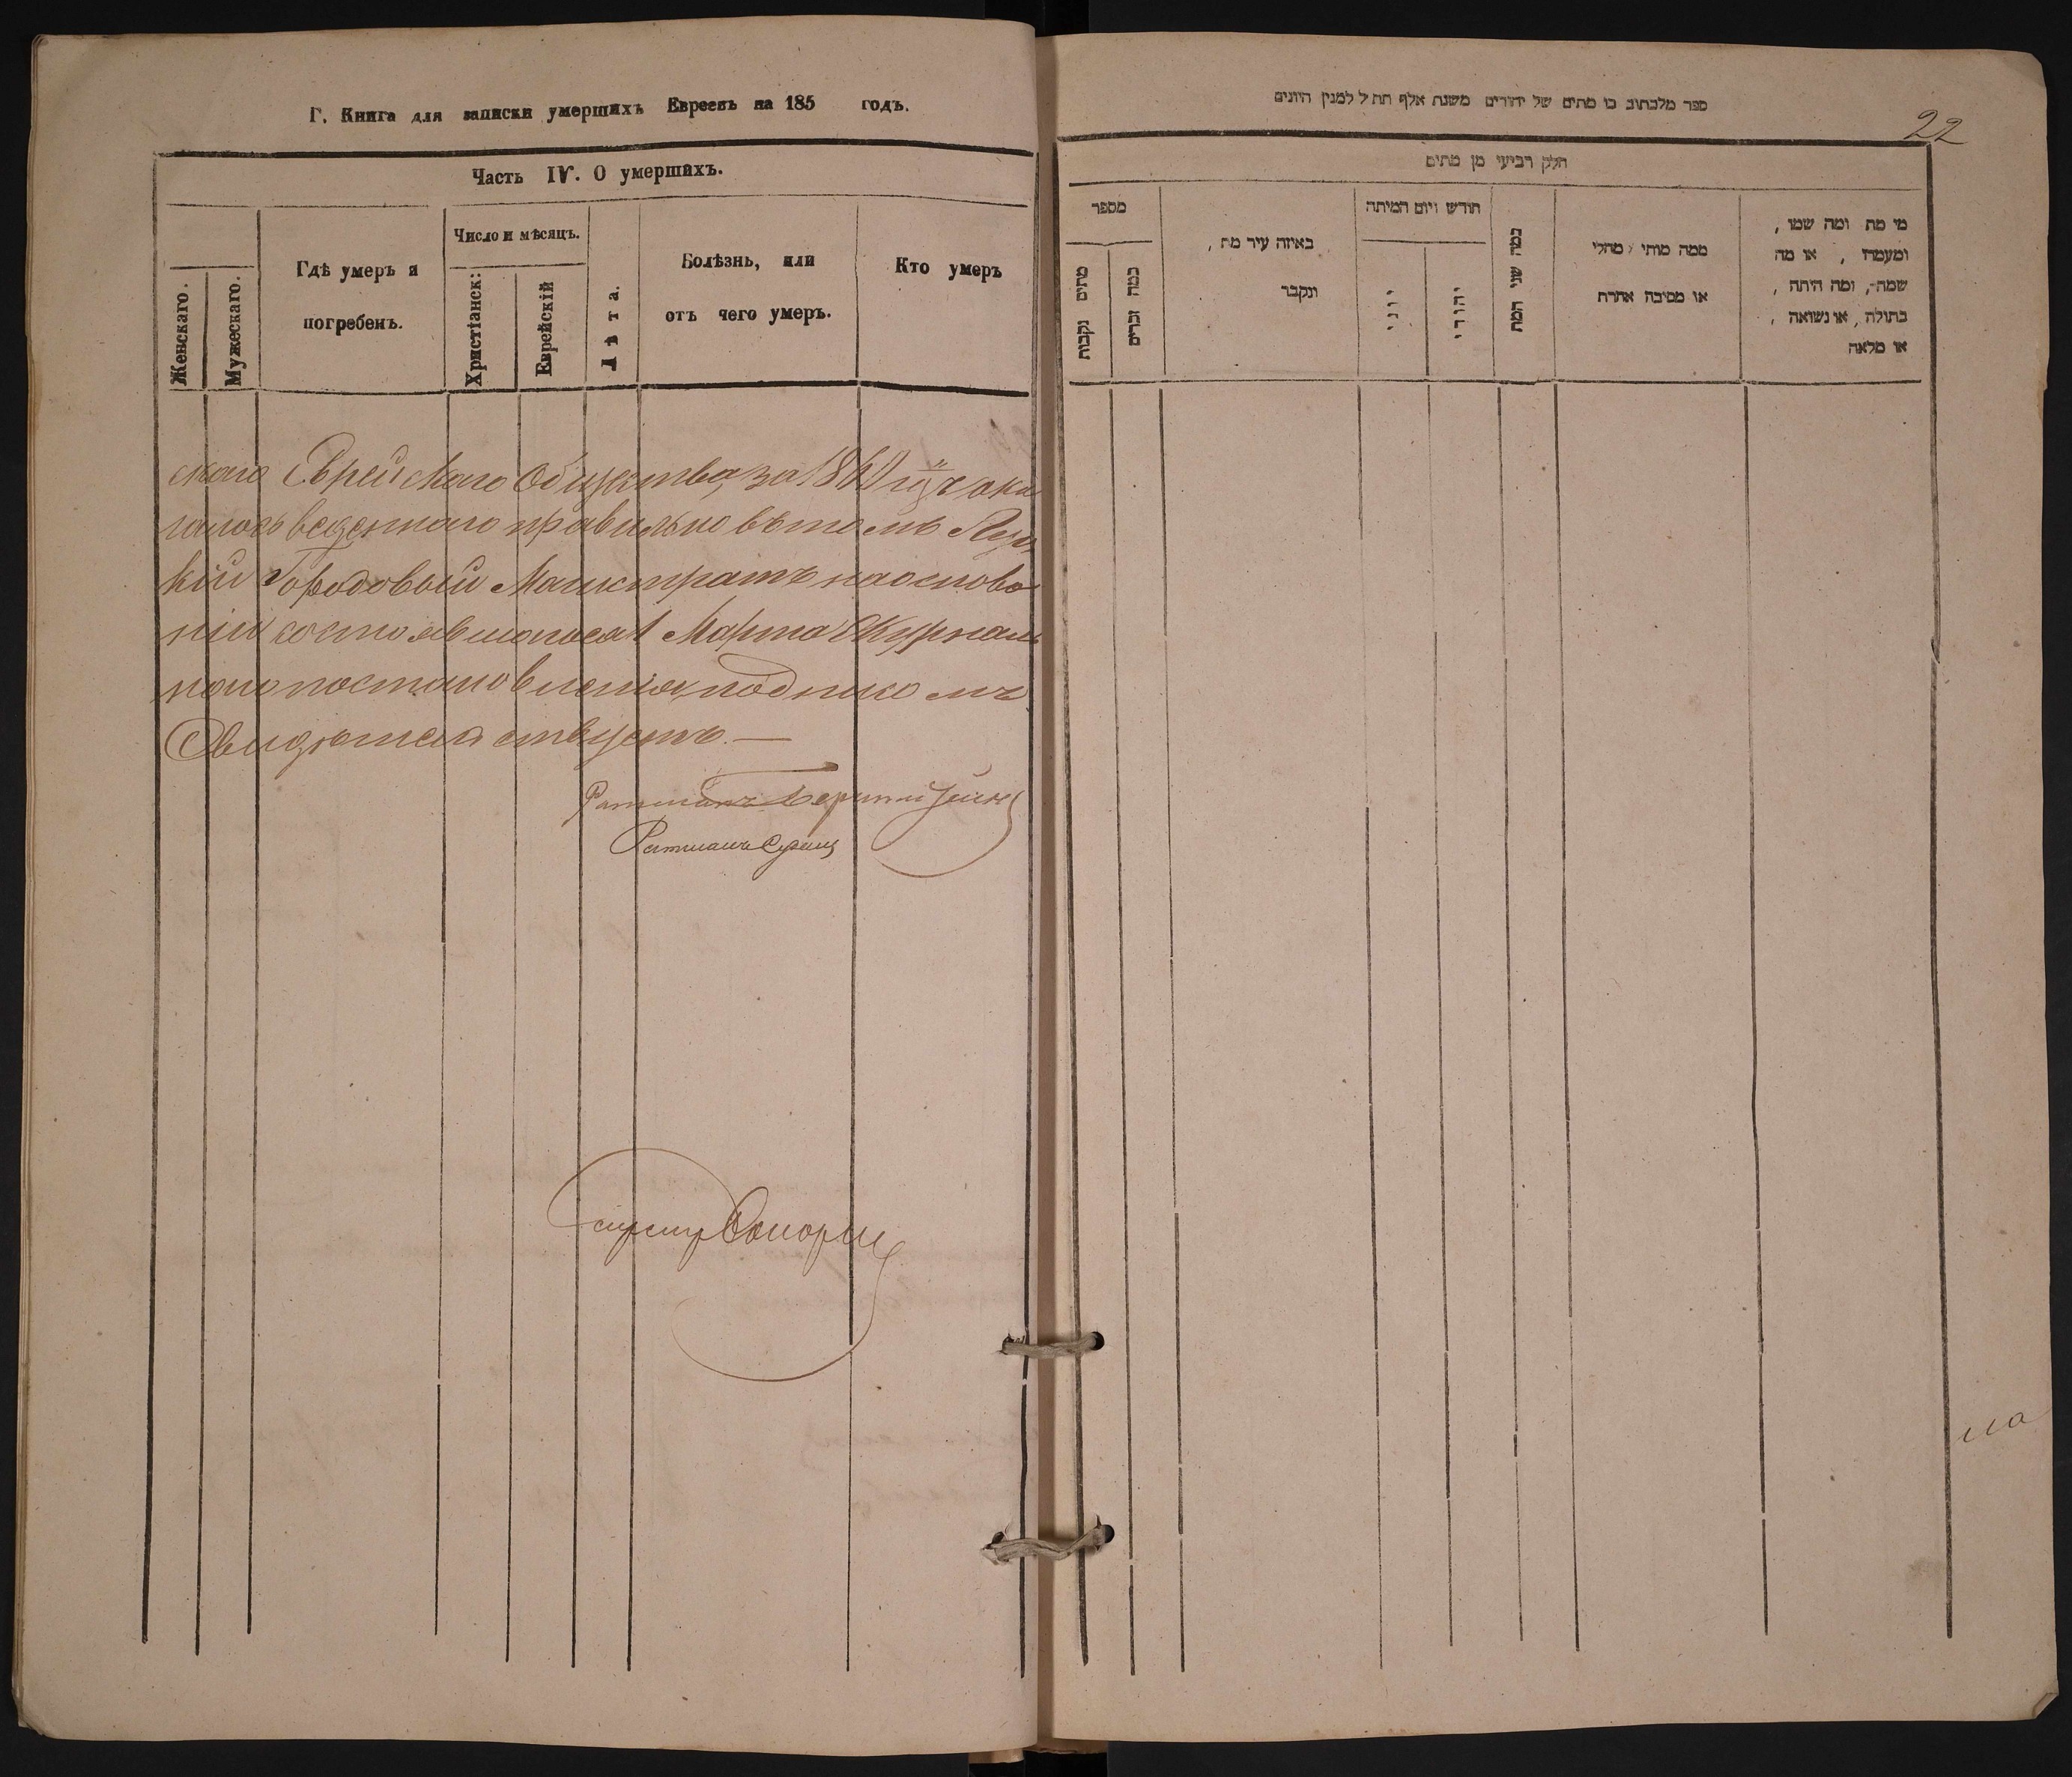 Г. Книга для записки умершихъ Евреевъ на 185 годъ.
Часть IV. О умершихъ.
Женскаго.
Мужескаго.
Гдѣ умеръ и
погребенъ.
Число и мѣсяцъ.
Христіанск:
Еврейскій
Лѣта.
Болѣзнь, или
отъ чего умеръ.
Кто умеръ
скаго Еврейскаго Общества, за 18 годъ ока
залось веденнаго правильно въ томъ Луц
кій Городовый Магистратъ на основа
ніи состоявшагося 1 Марта Журналь
наго постановленія, подписомъ
Свидѣтельствуетъ. —
Ратманъ
Ратманъ
22
ספר מלכתוב בו מתים של יהודים משנת אלף תת״ל למנין היונים
חלק רביעי מן מתים
מספר
מתים נקבות
כמה זכרים
באיזה עיר מת,
ונקבר
חודש ויום המיתה
יוני
יהודי
כמה שני המת
ממה מותו מחלי
או מסיבה אחרת
מי מת ומה שמו,
ומעמדו, או מה
שמה, ומה היתה,
בתולה, או נשואה,
או מלאה
на